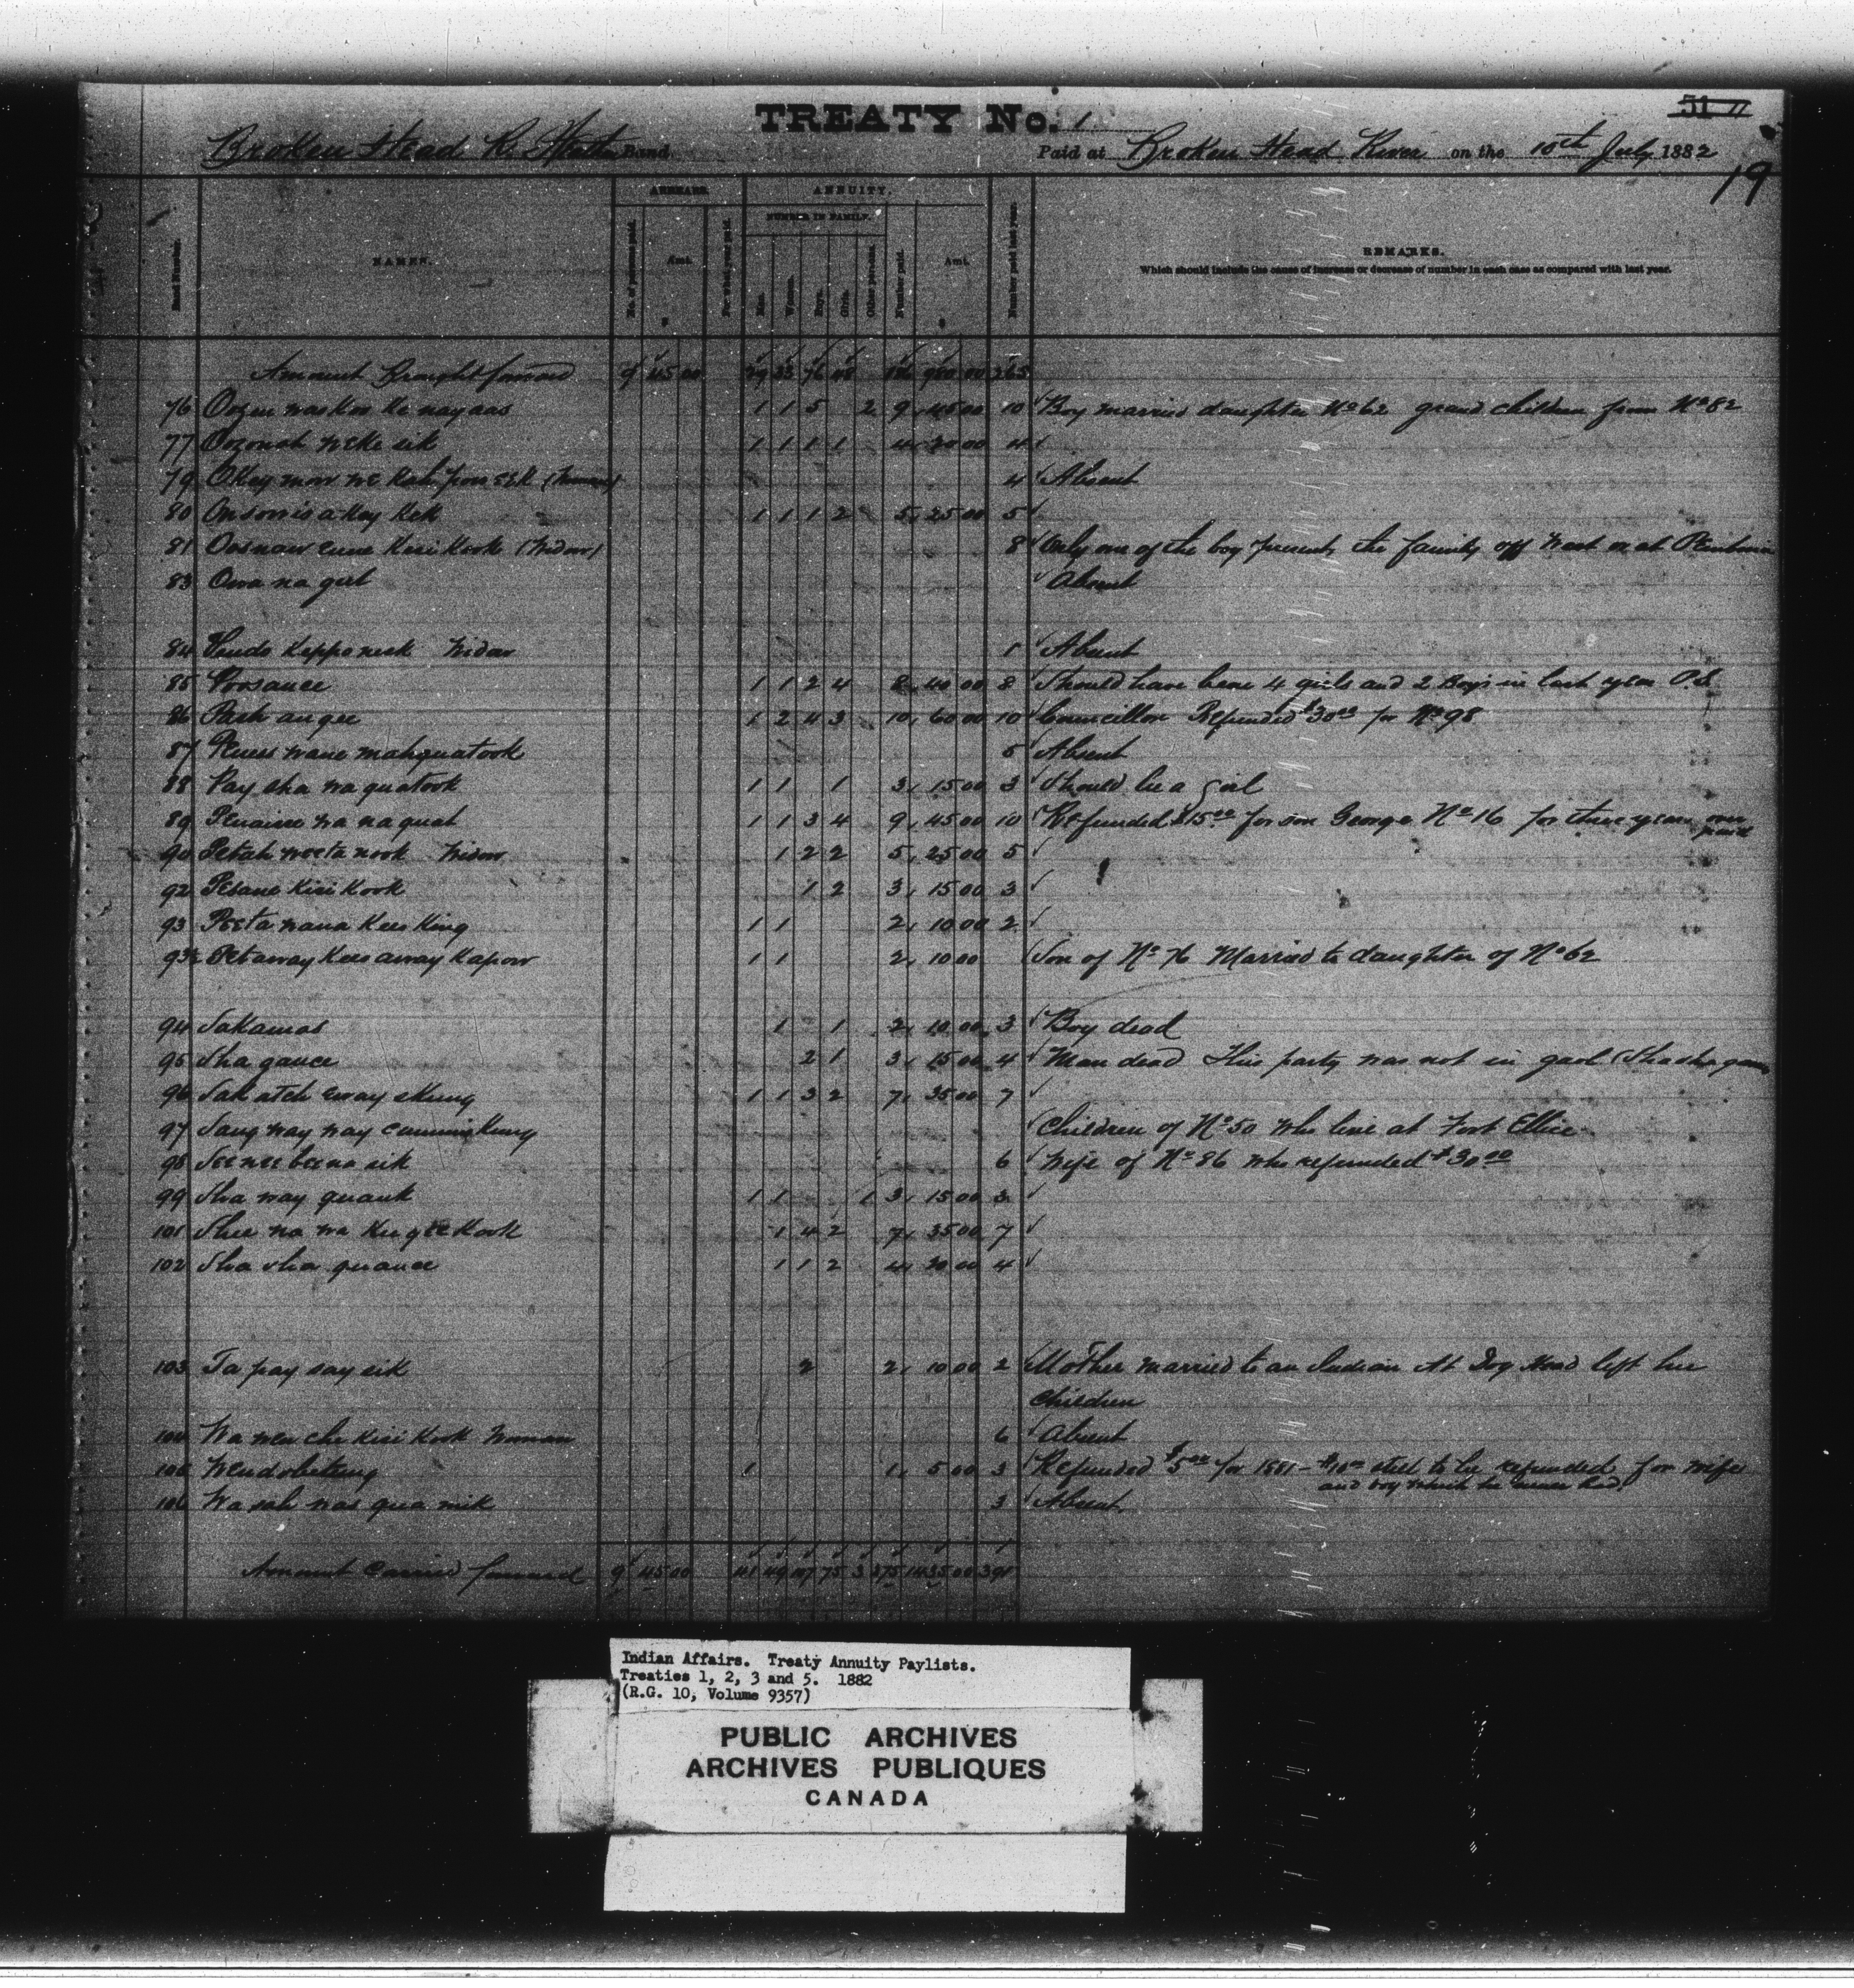 TREATY No. 1
51 11
Broken Head R. Band. Paid at Broken Head River on the 10th July 1882
19
ARREARS. ANNUITY.
NUMBER IN FAMILY.
Band Number. NAMES. No. of persons paid. Amt. For what year paid. Men. Women. Boys. Girls. Other persons. Number paid. Amt. Number paid last year. REMARKS.
Which should include the cause of increase or decrease of number in each case as compared with last year.
Amount Brought forward 9 45 00 29 35 76 48 980 00 265
76 Oozen was Koo Ke nay aas 1 1 5 2 9 45 00 10 Boy married daughter No 62 grand children from No 82
77 Oozonah weke sik 1 1 1 1 4 20 00 4
79 OKey mow we Kah pow seK (Woman) 4 Absent
80 On sow is a Key KeK 1 1 1 2 5 25 00 5
81 Oosnaw cume Kesi Kook (Widow) 8 Only one of the boy present, the family off West or at Pembina
83 Owa na geet Absent
84 Keppo neek Widow 1 Absent
85 Poosance 1 1 2 4 8 40 00 8 Should have been 4 girls and 2 Boys in last year P.S.
86 Pash an gee 1 2 4 3 10 60 00 10 Councillor Refunded $30 00 for No 98
87 Peness wane mahquatook 5 Absent
88 Pay sha wa quatook 1 1 1 3 15 00 3 Should be a girl
89 Penaisse wa na quat 1 1 3 4 9 45 00 10 Refunded $15 00 for son George No 16 for three years over paid
90 Petah weeta nook Widow 1 2 2 5 25 00 5
92 Pesane Kisi Kook 1 2 3 15 00 3
93 Peeta wana Kees King 1 1 2 10 00 2
93½ Petaway Kees away Kapow 1 1 2 10 00 Son of No 76 Married to daughter of No 62
94 SaKamas 1 1 2 10 00 3 Boy dead
95 Sha gauce 2 1 3 15 00 4 Man dead This party was not in gaol
96 Sak atch eway sKung 1 1 3 2 7 35 00 7
97 Saug way way cummin Kung Children of No 50 who live at Fort Ellice
98 See nee bee na sik 6 Wife of No 86 who refunded $30 00
99 Sha way quauk 1 1 1 3 15 00 3
101 Shee na wa Kee gee Kook 1 4 2 7 35 00 7
102 Sha sha quance 1 1 2 4 20 00 4
103 Ta pay say sik 2 2 10 00 2 Mother married to an Indian At Dog Head left her
children
104 Wa wen che Kisi Kook Woman 6 Absent
105 Wendobetung 1 1 5 00 3 Refunded $5 00 for 1881 – $10 00 still to be refunded for wife
and boy which he never had
106 Wa sah was qua nik 3 Absent
Amount Carried forward 9 45 00 41 49 107 75 3 275 1435 00 391
Indian Affairs. Treaty Annuity Paylists.
Treaties 1, 2, 3 and 5. 1882
(R.G. 10, Volume 9357)
PUBLIC ARCHIVES
ARCHIVES PUBLIQUES
CANADA